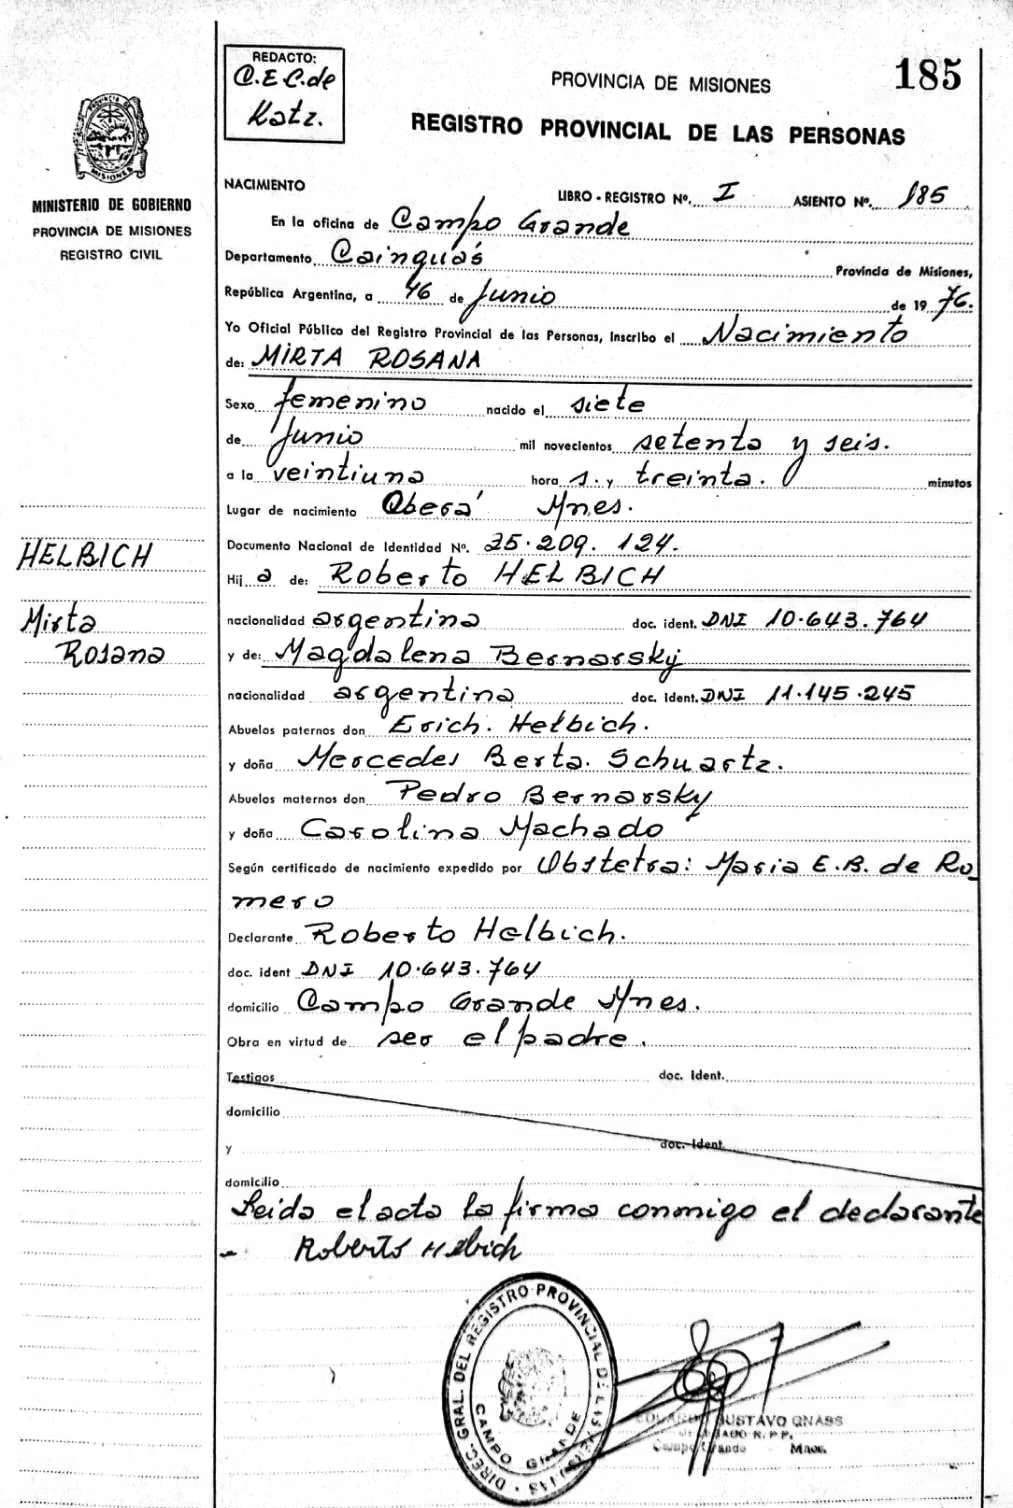 REDACTO:
C.E.C.de
Katz.
PROVINCIA DE MISIONES
185
REGISTRO PROVINCIAL DE LAS PERSONAS
MISIONES
MINISTERIO DE GOBIERNO
PROVINCIA DE MISIONES
REGISTRO CIVIL
NACIMIENTO
LIBRO - REGISTRO Nº. I ASIENTO Nº. 185
En la oficina de Campo Grande
Departamento Cainguás Provincia de Misiones,
República Argentina, a 16 de Junio de 19 76.
Yo Oficial Público del Registro Provincial de las Personas, inscribo el Nacimiento
de: MIRTA ROSANA
Sexo femenino nacido el siete
de Junio mil novecientos setenta y seis.
a la veintiuna hora s. y treinta. minutos
Lugar de nacimiento Oberá Mnes.
Documento Nacional de Identidad Nº. 25.209.124.
HELBICH
Mirta
Rosana
Hij a de: Roberto HELBICH
nacionalidad argentina doc. ident. DNI 10.643.764
y de: Magdalena Bernarsky
nacionalidad argentina doc. ident. DNI 11.145.245
Abuelos paternos don Erich. Helbich.
y doña Mercedes Berta. Schuartz.
Abuelos maternos don Pedro Bernarsky
y doña Carolina Machado
Según certificado de nacimiento expedido por Obstetra: Maria E.B. de Ro_
mero
Declarante Roberto Helbich.
doc. ident DNI 10.643.764
domicilio Campo Grande Mnes.
Obra en virtud de ser el padre.
Testigos doc. Ident.
domicilio
y doc. Ident.
domicilio
Leida el acta la firma conmigo el declarante
- Roberto Helbich
DIREC. GRAL. DEL REGISTRO PROVINCIAL DE LAS PERSONAS
CAMPO GRANDE
EDUARDO GUSTAVO QNASS
DELEGADO R. P. P.
Campo Grande Mnes.